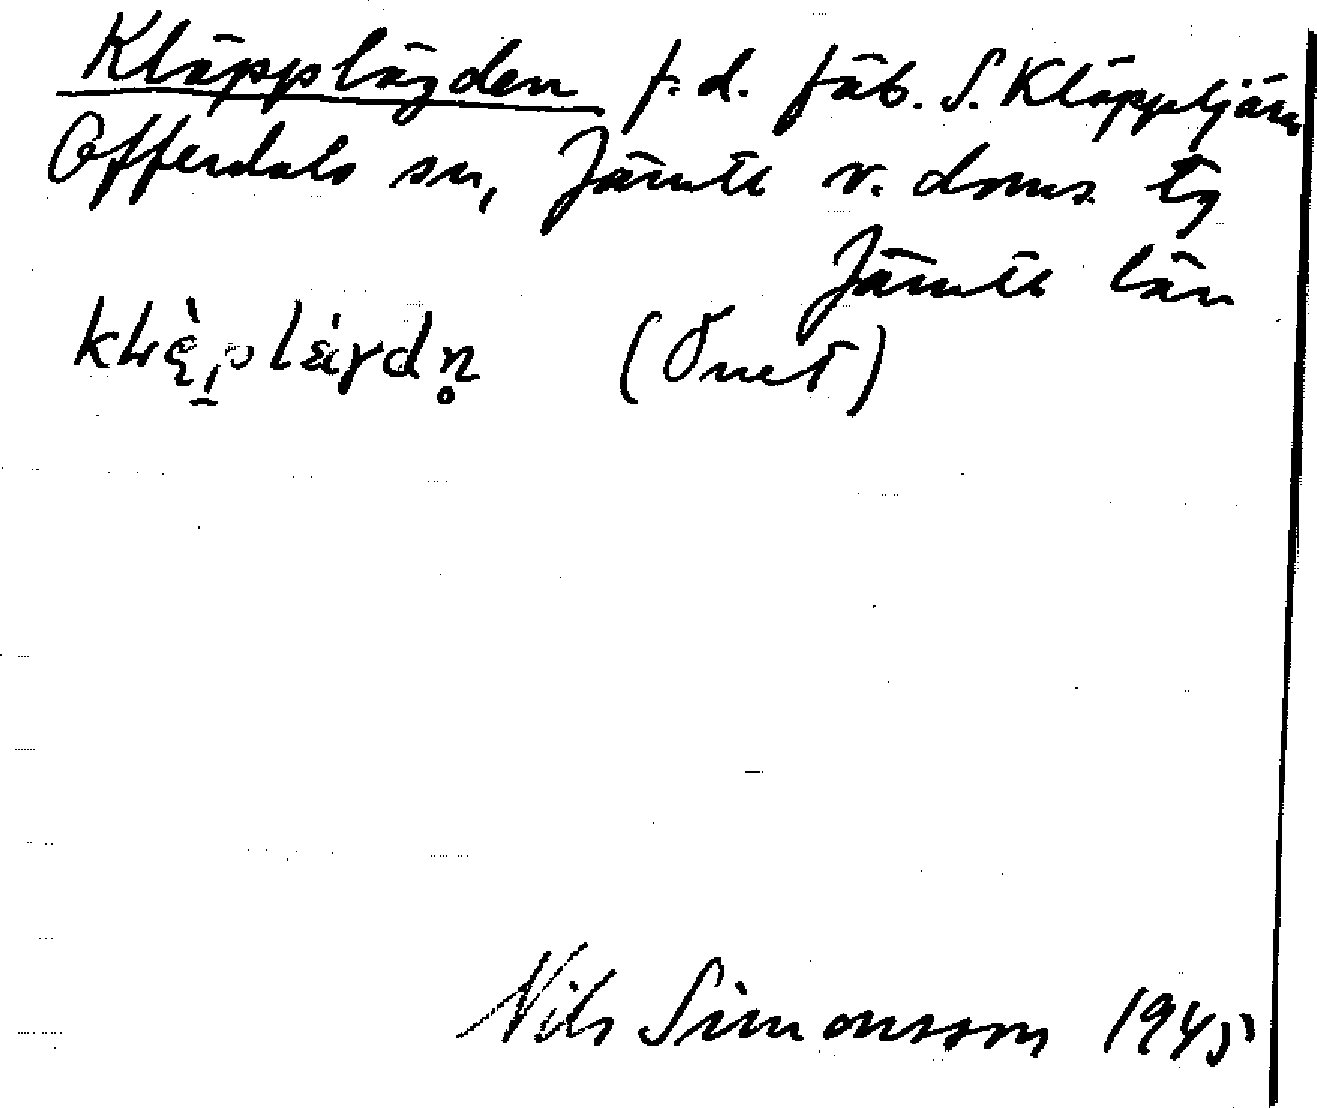 Kläpplägden f.d. fäb. S. Kläppstjärn
Offerdals sn, Jämtl v. doms. tg
Jämtl län
(Önet)
Nils Simonsson 1945